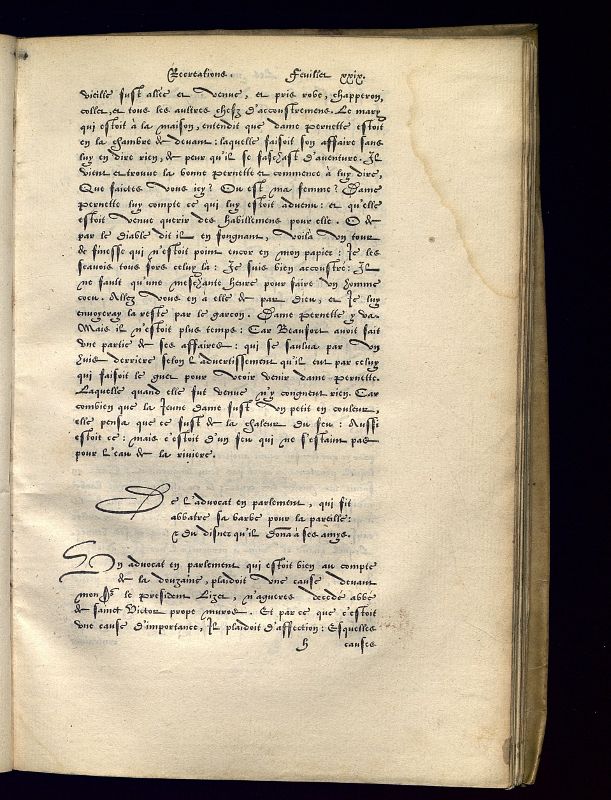 Recreations. Feuillet xxix.
vieille fust allee et venue, et pris robe, chapperon,
collet, et tous les aultres chefz d'accoustremens. Le mary
qui estoit à la maison, entendit que dame pernette estoit
en la chambre de devant: laquelle faisoit son affaire sans
luy en dire rien, de peur qu'il se faschast d'aventure. Il
vient et trouve la bonne pernette et commence à luy dire,
Que faictes vous icy? Ou est ma femme? Dame
pernette luy compte ce qui luy estoit advenu: et qu'elle
estoit venue querir des habillemens pour elle. O de
par le diable dit il en fongnant, voila un tour
de finesse qui n'estoit point encor en mon papier: Je les
scavois tous fors celuy la: Je suis bien accoustré: Il
ne fault qu'une meschante heure pour faire un homme
cocu. Allez vous en à elle de par dieu, et Je luy
envoyeray la reste par le garcon. Dame pernette y va.
Mais il n'estoit plus temps: Car Beaufort avoit fait
une partie de ses affaires: qui se saulva par un
huis derriere selon l'advertissement qu'il eut par celuy
qui faisoit le guet pour veoir venir dame pernette.
Laquelle quand elle fut venue n'y congneut rien. Car
combien que la Jeune dame fust un petit en couleur,
elle pensa que ce fust de la chaleur du feu: Aussi
estoit ce: mais c'estoit d'un feu qui ne s'estaint pas
pour l'eau de la riviere.
De L'advocat en parlement, qui fit
abbatre sa barbe pour la pareille:
& du disner qu'il dona à ses amys.
Un advocat en parlement qui estoit bien au compte
de la douzaine, plaidoit une cause devant
mon le president Lizet, n'agueres decede abbe
de sainct Victor prope muros. Et par ce que c'estoit
une cause d'importance, Il plaidoit d'affection: Esquelles
h causes